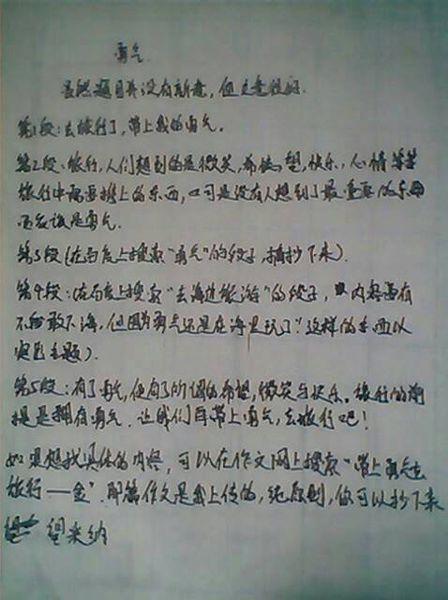 勇气
虽然题目并没有新意,但立意很好.
第1段:去旅行了,带上我的勇气.
第2段:旅行,人们想到的是微笑,希望,快乐,心情等等
旅行中需要带上的东西,可是没有人想到了最重要的东西
而应该是勇气.
第3段(在百度上搜索“勇气”的段子,摘抄下来).
第4段:(在百度上搜索“去海边旅游”的段子,内容要有
不敢下海,但因为勇气还是在海里玩了”这样的东西以
突出主题).
第5段:有了勇气,便有了所谓的希望,微笑与快乐.旅行的前
提是拥有勇气.让我们带上勇气,去旅行吧!
如果想找具体的内容,可以在作文网上搜索“带上勇气去
旅行——金”.那篇作文是我上传的,纯原创,你可以抄下来
望采纳